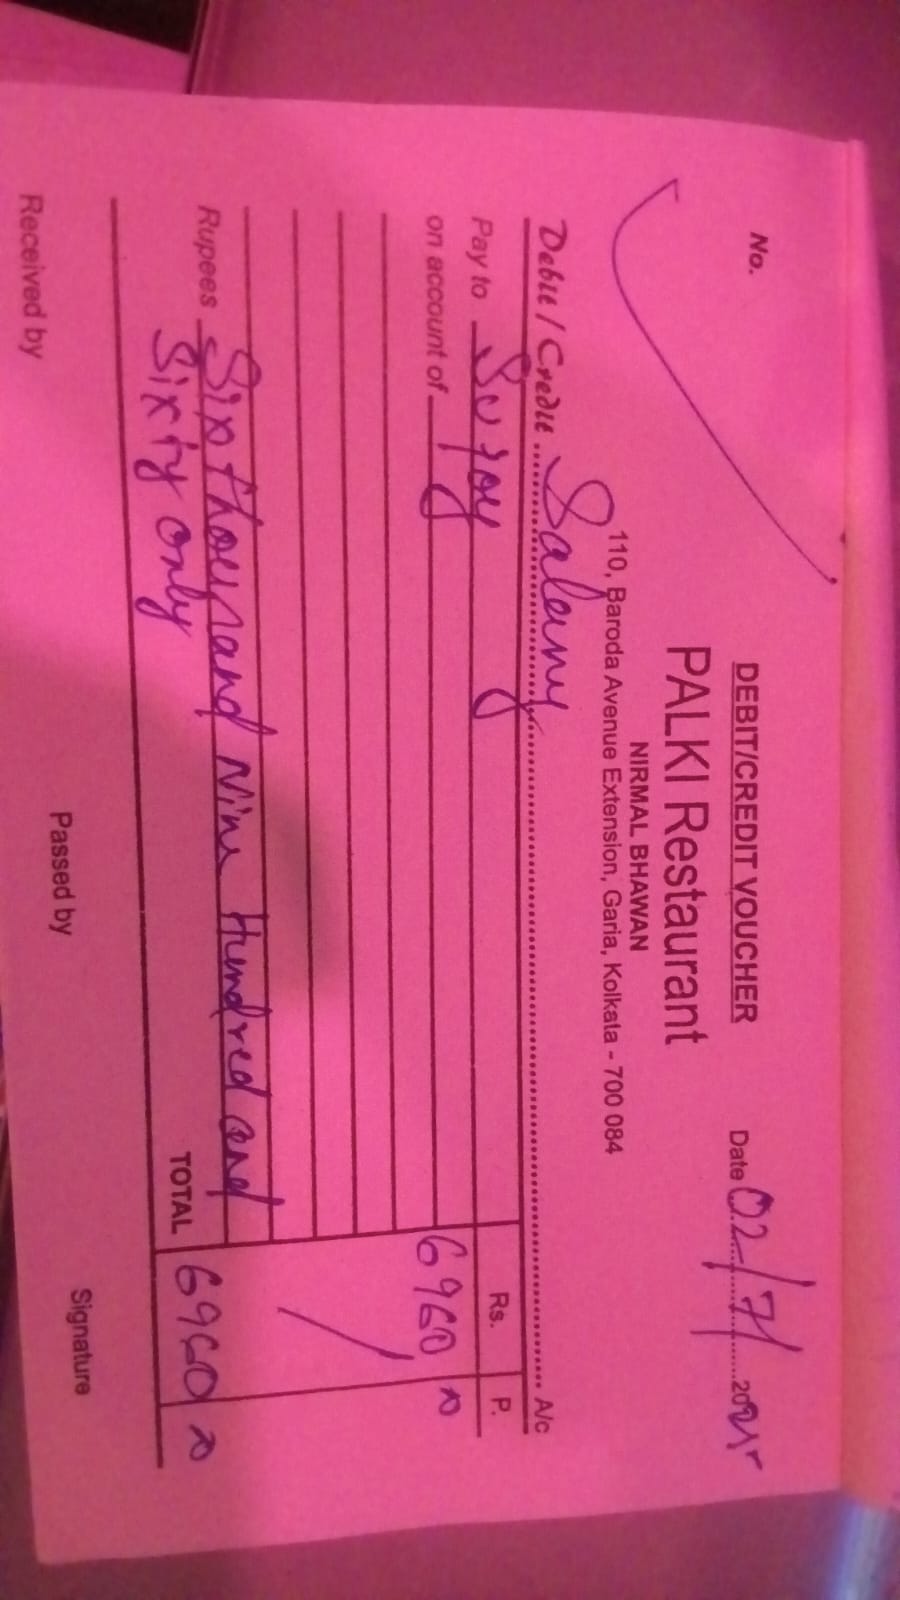 DEBIT/CREDIT VOUCHER
No.
Date 02/7/2025
PALKI Restaurant
NIRMAL BHAWAN
110, Baroda Avenue Extension, Garia, Kolkata - 700 084
Debit / Credit Salary A/c
Pay to Sujoy Rs. P.
on account of 6960
Rupees Six thousand Nine Hundred and
Sixty only
TOTAL 6960
Received by Passed by Signature